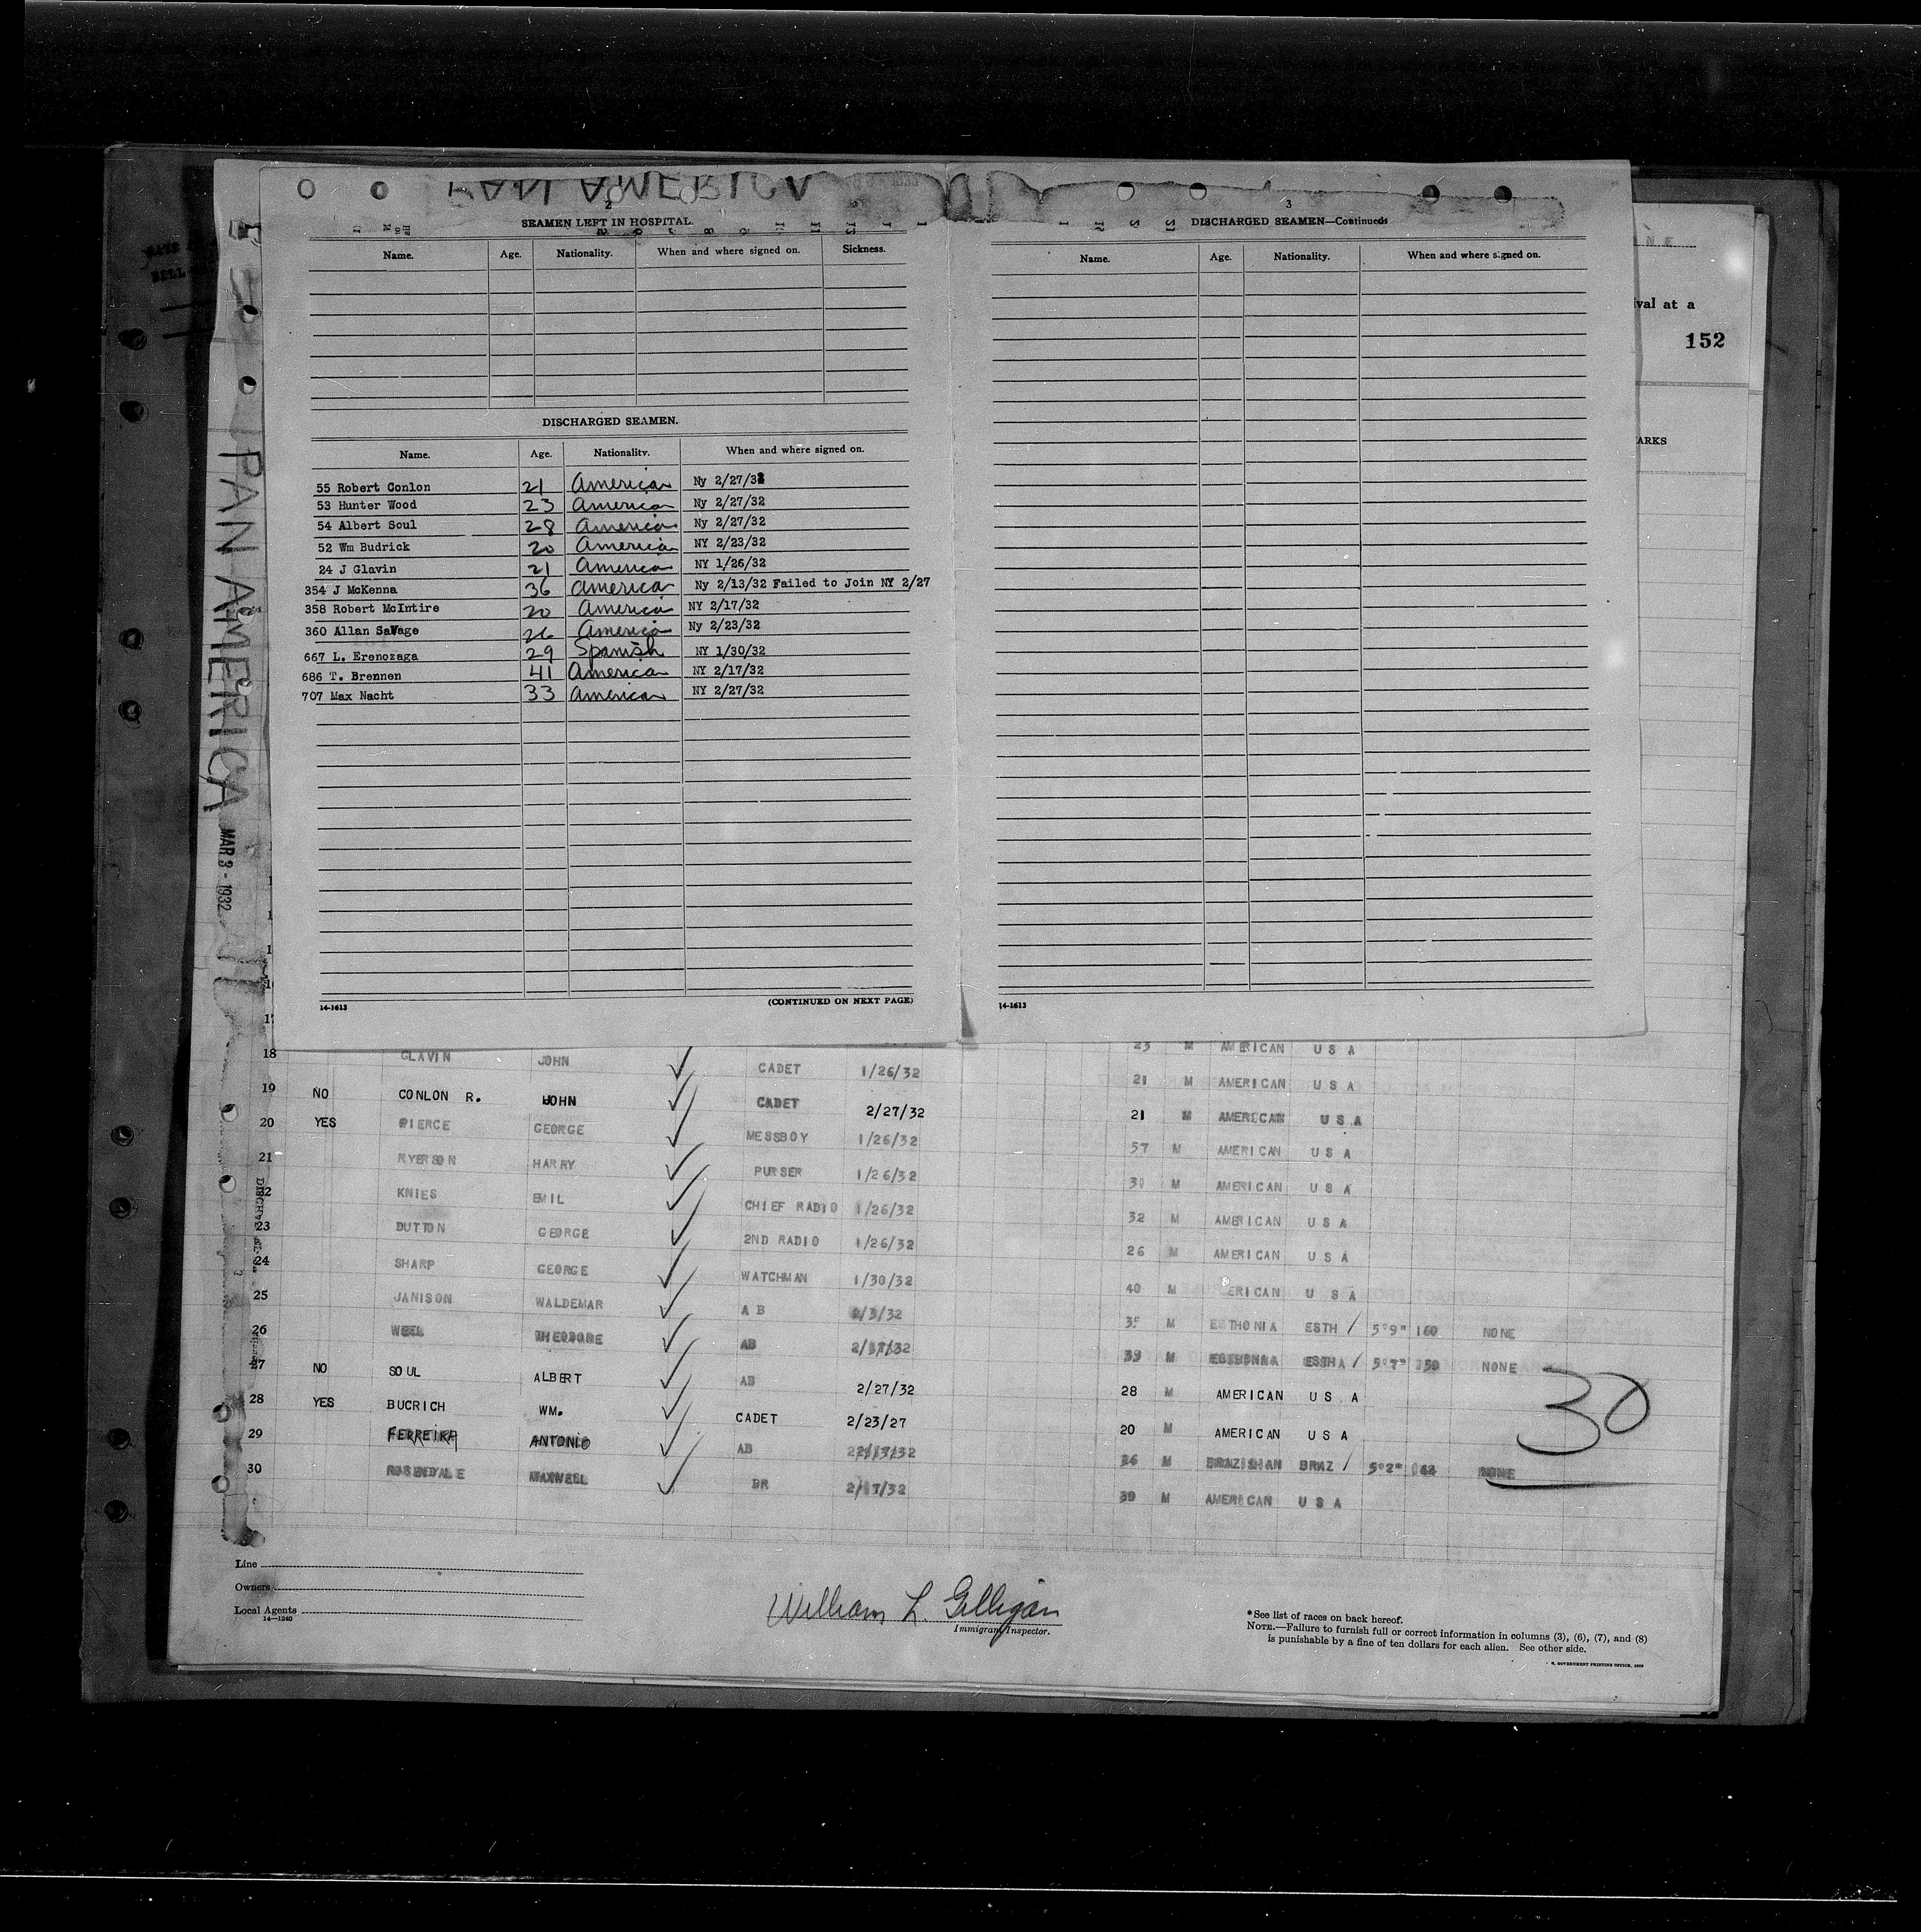 PAN AMERICA
2
SEAMEN LEFT IN HOSPITAL.
Name. Age. Nationality. When and where signed on. Sickness.
DISCHARGED SEAMEN.
Name. Age. Nationality. When and where signed on.
55 Robert Conlon 21 America Ny 2/27/32
53 Hunter Wood 23 America Ny 2/27/32
54 Albert Soul 28 America Ny 2/27/32
52 Wm Budrick 20 America NY 2/23/32
24 J Glavin 21 America NY 1/26/32
354 J McKenna 36 America Ny 2/13/32 Failed to Join NY 2/27
358 Robert McIntire 20 America NY 2/17/32
360 Allan Savage 26 America Ny 2/23/32
667 L. Erenozaga 29 Spanish NY 1/30/32
686 T. Brennen 41 America NY 2/17/32
707 Max Nacht 33 America NY 2/27/32
14-1613 (CONTINUED ON NEXT PAGE)
3
DISCHARGED SEAMEN—Continued
Name. Age. Nationality. When and where signed on.
14-1613
ival at a
152
ARKS
PAN AMERICA
MAR 3 - 1932
17
18 GLAVIN JOHN CADET 1/26/32 23 M AMERICAN U S A
19 NO CONLON R. JOHN CADET 2/27/32 21 M AMERICAN U S A
20 YES PIERCE GEORGE MESSBOY 1/26/32 21 M AMERICAN U S A
21 RYERSON HARRY PURSER 1/26/32 57 M AMERICAN U S A
22 KNIES EMIL CHIEF RADIO 1/26/32 30 M AMERICAN U S A
23 DUTTON GEORGE 2ND RADIO 1/26/32 32 M AMERICAN U S A
24 SHARP GEORGE WATCHMAN 1/30/32 26 M AMERICAN U S A
25 JANISON WALDEMAR A B 2/3/32 40 M ERICAN U S A
26 WEEL THEODORE AB 2/17/32 35 M ESTHONIA ESTH / 5'9" 160 NONE
27 NO SOUL ALBERT AB 2/27/32 33 M ESTHONIA ESTHA / 5'7" 150 NONE
28 YES BUCRICH WM. CADET 2/23/27 28 M AMERICAN U S A
29 FERREIRA ANTONIO AB 2/17/32 20 M AMERICAN U S A
30 ROSENDALE MAXWELL BR 2/17/32 26 M BRAZILIAN BRAZ / 5'2" NONE
39 M AMERICAN U S A
30
Line
Owners
Local Agents
14—1240
William L. Gilligan
Immigrant Inspector.
*See list of races on back hereof.
NOTE.—Failure to furnish full or correct information in columns (3), (6), (7), and (8)
is punishable by a fine of ten dollars for each alien. See other side.
GOVERNMENT PRINTING OFFICE